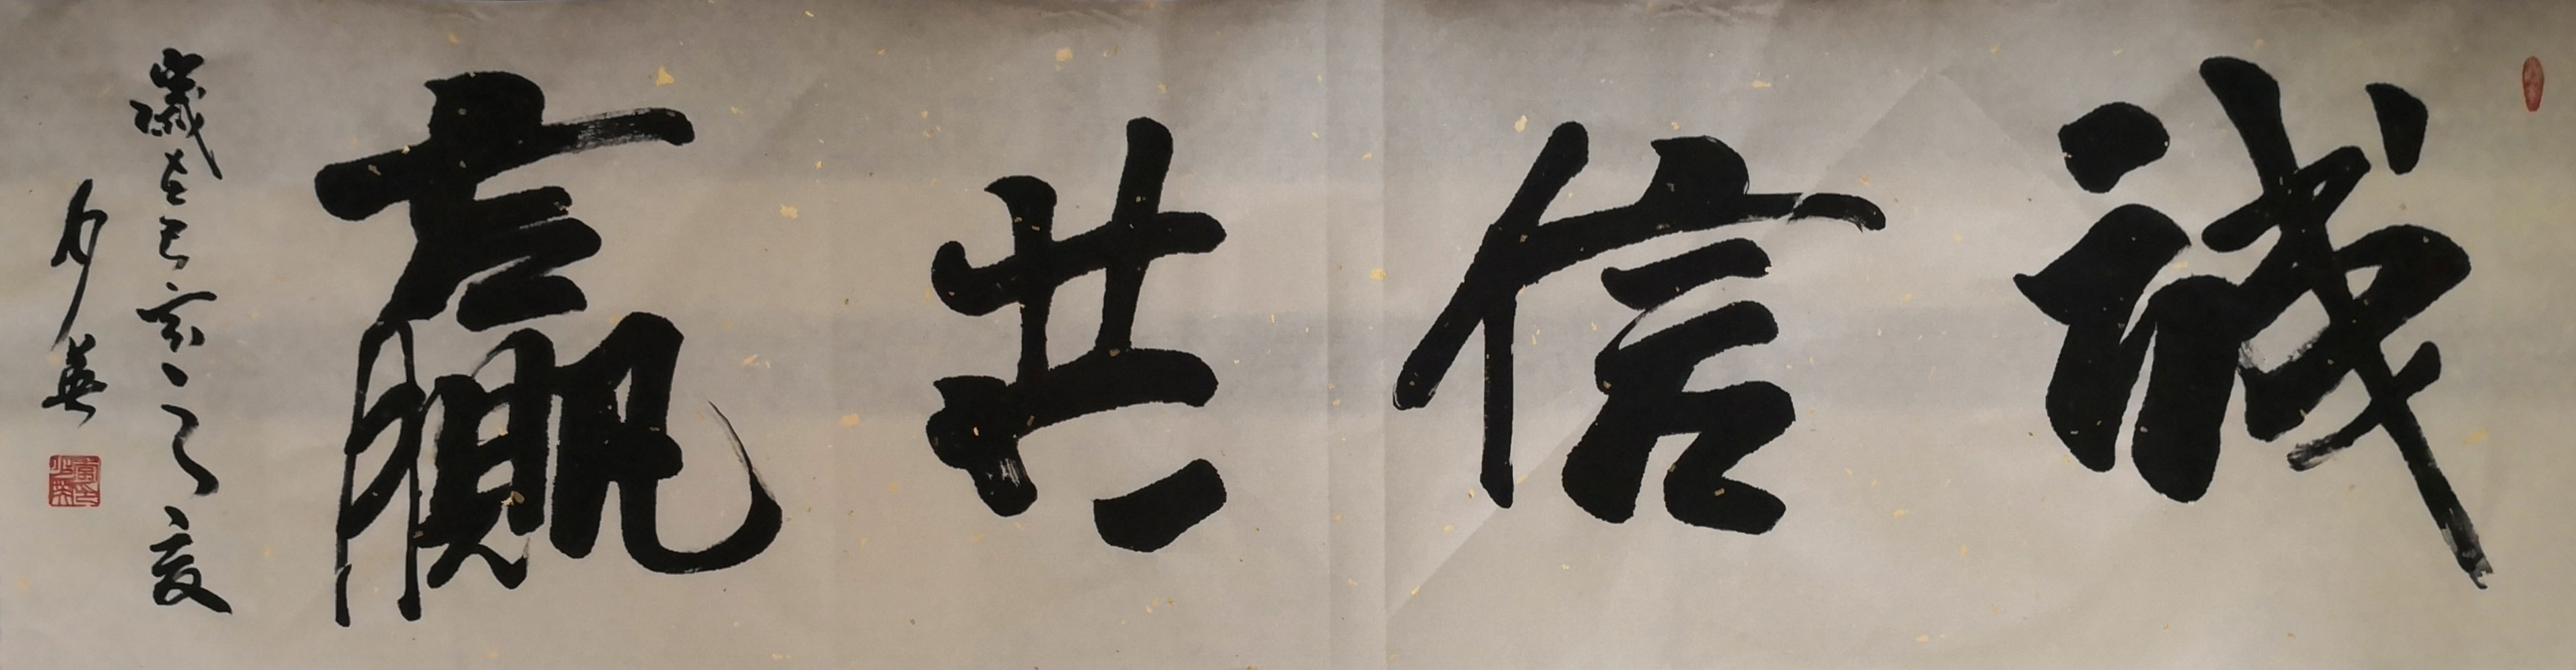 誠信共贏
歲在己亥之夏
少英